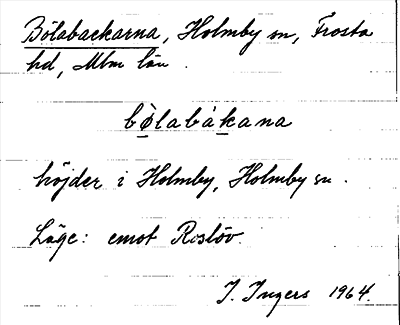 Bölabackarna, Holmby sn, Frosta
hd, Mlm län.
bò̤labàkana
höjder i Holmby, Holmby sn.
Läge: emot Roslöv.
I. Ingers 1964.